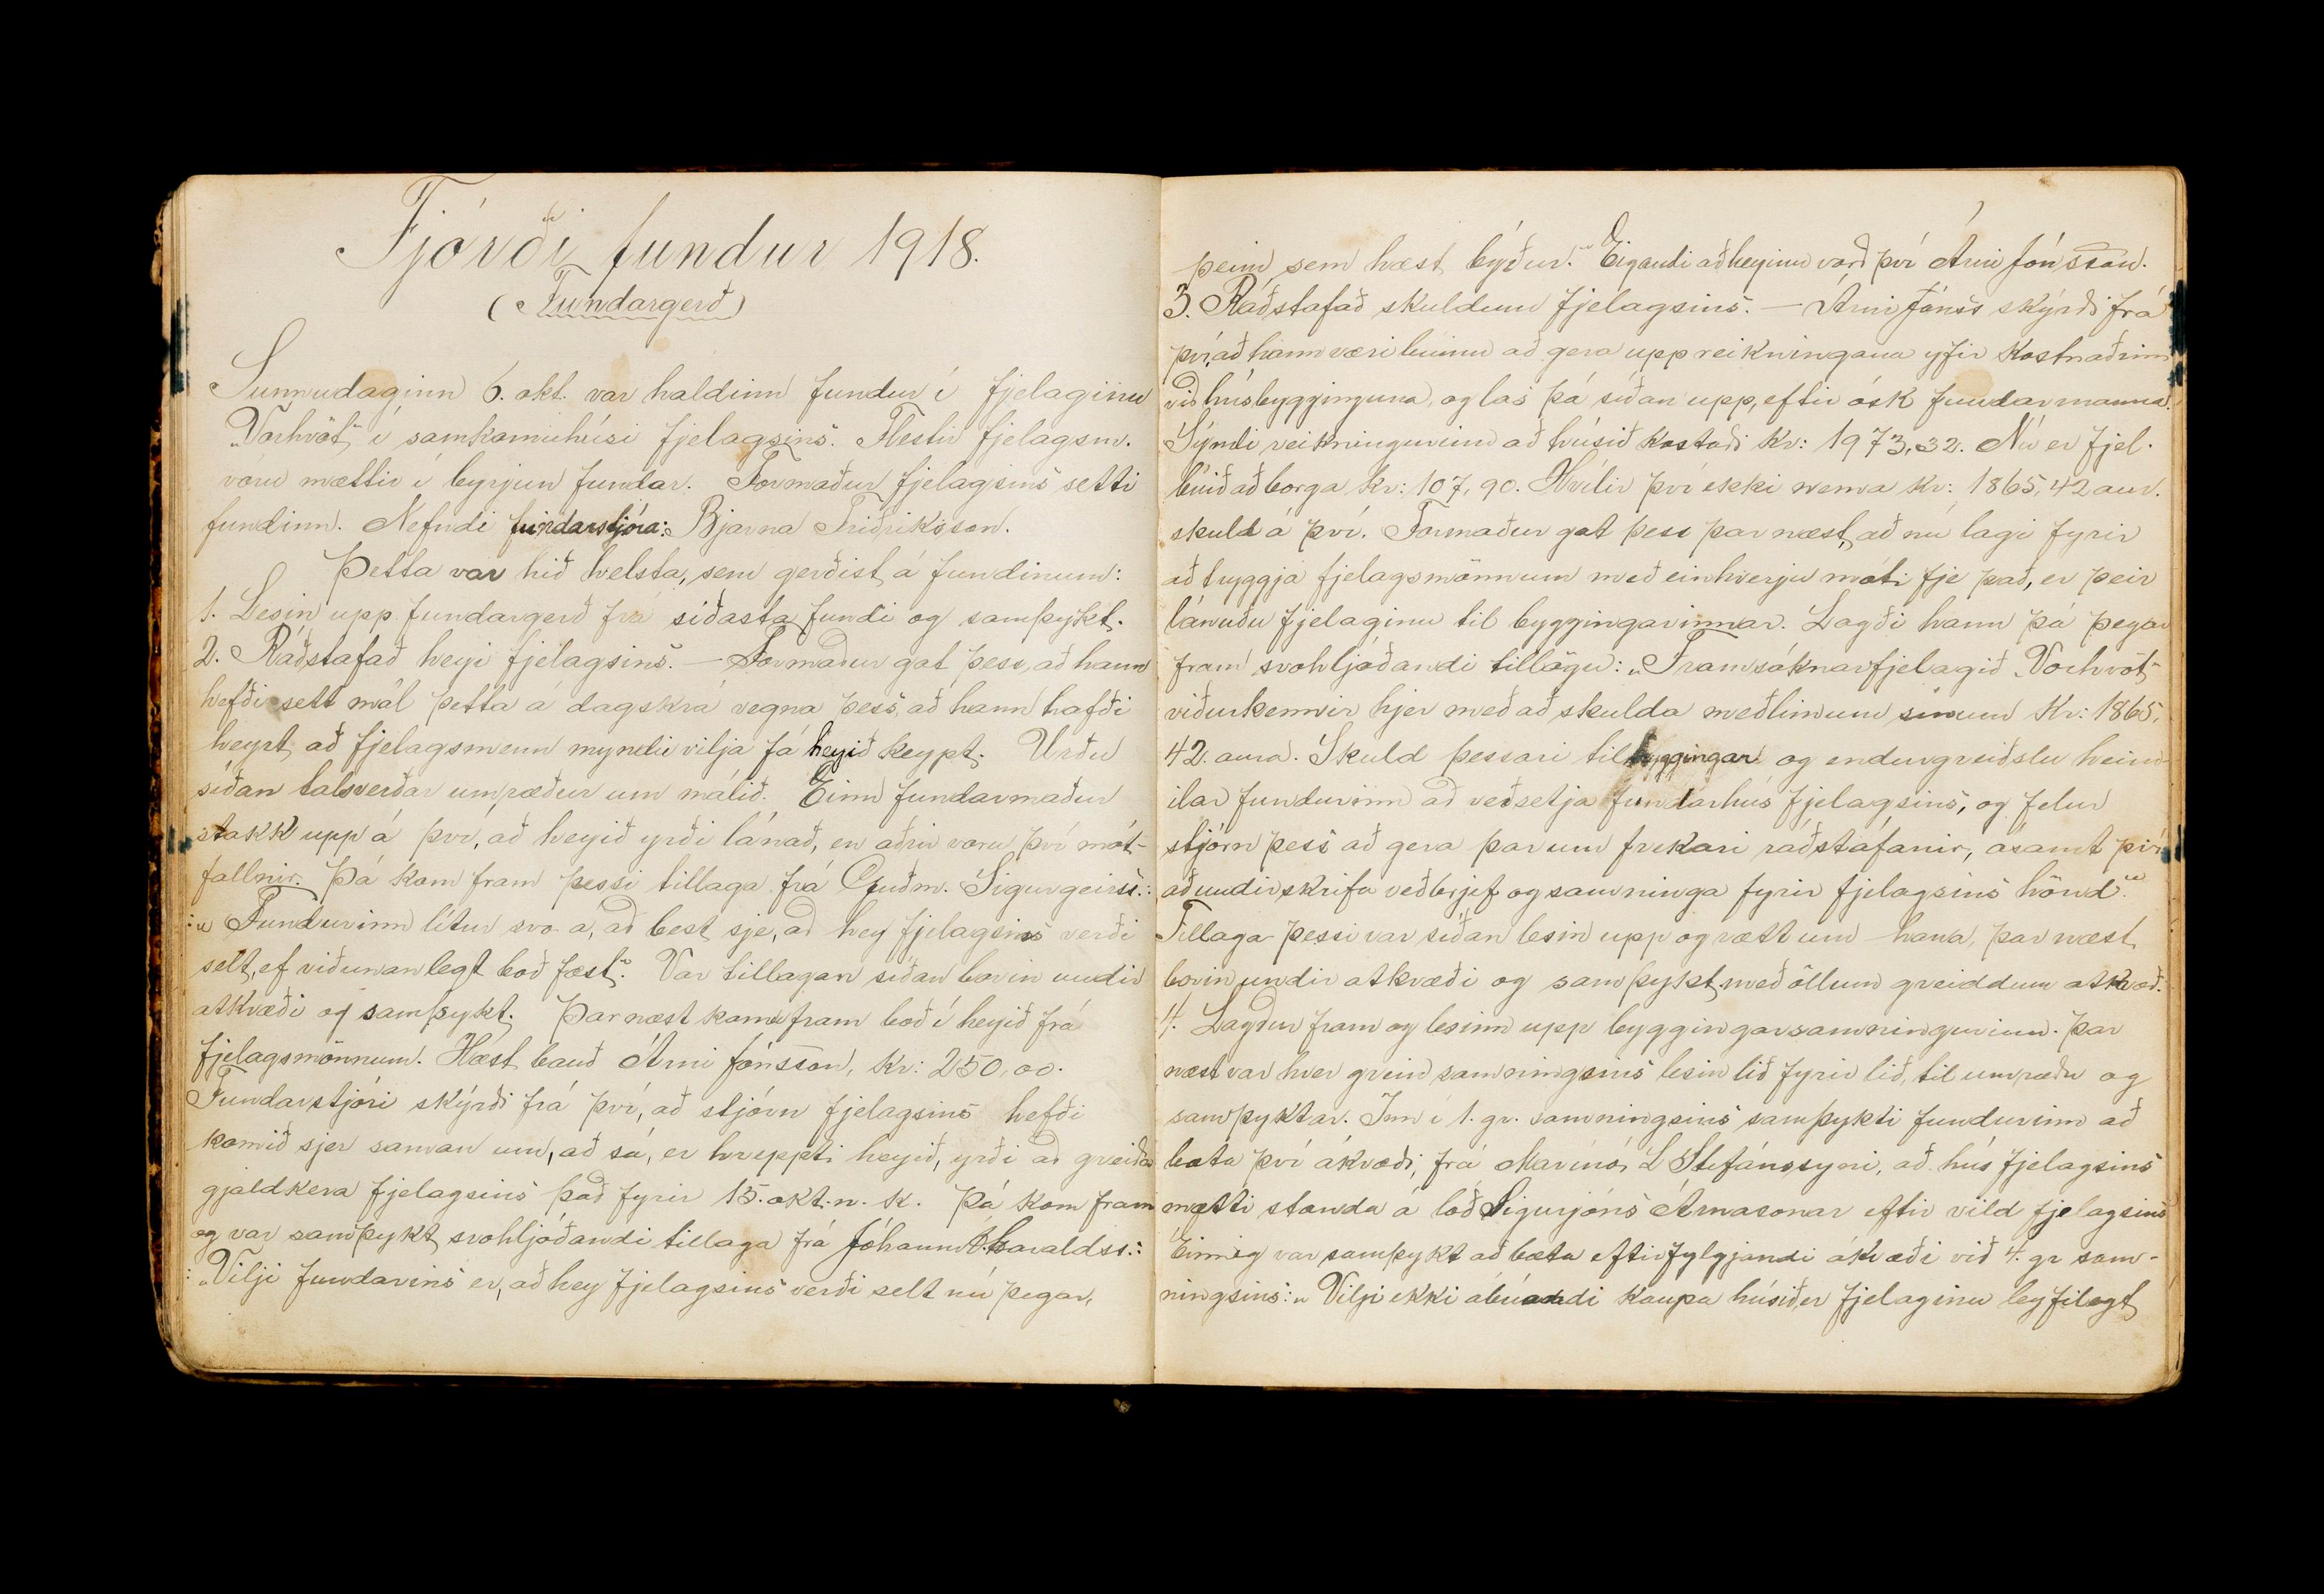 Fjórði fundur 1918.
(Fundargerð)
Sunnudaginn 6. okt. var haldinn fundur í fjelaginu
„Vorhvöt“ í samkomuhúsi fjelagsins. Flestir fjelagsm.
voru mættir í byrjun fundar. Formaður fjelagsins setti
fundinn. Nefndi fundarstjóra: Bjarna Friðriksson.
Þetta var hið helsta, sem gerðist á fundinum:
1. Lesin upp fundargerð frá síðasta fundi og samþykt.
2. Ráðstafað heyi fjelagsins. — Formaður gat þess, að hann
hefði sett mál þetta á dagskrá vegna þess, að hann hafði
heyrt, að fjelagsmenn myndu vilja fá heyið keypt. Urðu
síðan talsverðar umræður um málið. Einn fundarmaður
stakk upp á því, að heyið yrði lánað, en aðrir voru því mót-
fallnir. Þá kom fram þessi tillaga frá Guðm. Sigurgeirss.:
:„Fundurinn lítur svo á, að best sje, að hey fjelagsins verði
selt, ef viðunanlegt boð fæst“. Var tillagan síðan borin undir
atkvæði og samþykt. Þarnæst komu fram boð í heyið frá
fjelagsmönnum. Hæst bauð Árni Jónsson, kr: 250,00.
Fundarstjóri skýrði frá því, að stjórn fjelagsins hefði
komið sjer saman um, að sá, er hreppti heyið, yrði að greiða
gjaldkera fjelagsins það fyrir 15. okt. n. k. Þá kom fram
og var samþykt svohljóðandi tillaga frá Jóhanni Haraldss.:
:„Vilji fundarins er, að hey fjelagsins verði selt nú þegar,
þeim sem hæst býður.“ Eigandi að heyinu varð því Árni Jónsson.
3. Ráðstafað skuldum fjelagsins. — Árni Jónss skýrði frá
því, að hann væri búinn að gera upp reikningana yfir kostnaðinn
við húsbygginguna, og las þá síðan upp, eftir ósk fundarmanna.
Sýndi reikningurinn að húsið kostaði Kr: 1973,32. Nú er fjel.
búið að borga Kr: 107,90. Hvílir því ekki nema Kr: 1865,42 aur.
skuld á því. Formaður gat þess þar næst, að nú lægi fyrir
að tryggja fjelagsmönnum með einhverju móti fje það, er þeir
lánuðu fjelaginu til byggingarinnar. Lagði hann þá þegar
fram svohljóðandi tillögu: „Framsóknarfjelagið „Vorhvöt“
viðurkennir hjer með að skulda meðlimum sínum Kr: 1865,
42. aura. Skuld þessari til tryggingar og endurgreiðslu heim-
ilar fundurinn að veðsetja fundarhús fjelagsins, og felur
stjórn þess að gera þar um frekari ráðstafanir, ásamt því
að undirskrifa veðbrjef og samninga fyrir fjelagsins hönd“.
Tillaga þessi var síðan lesin upp og rætt um hana, þar næst
borin undir atkvæði og samþykt með öllum greiddum atkvæð.
4. Lagður fram og lesinn upp byggingarsamningurinn. Þar
næst var hver grein samningsins lesin lið fyrir lið, til umræðu og
samþyktar. Inn í 1. gr. samningsins samþykti fundurinn að
bæta því ákvæði, frá Marinó L Stefánssyni, að hús fjelagsins
mætti standa á lóð Sigurjóns Árnasonar eftir vild fjelagsins
Einnig var samþykt að bæta eftirfylgjandi ákvæði við 4. gr sam-
ningsins: „Vilji ekki ábúandi kaupa húsið, er fjelaginu leyfilegt